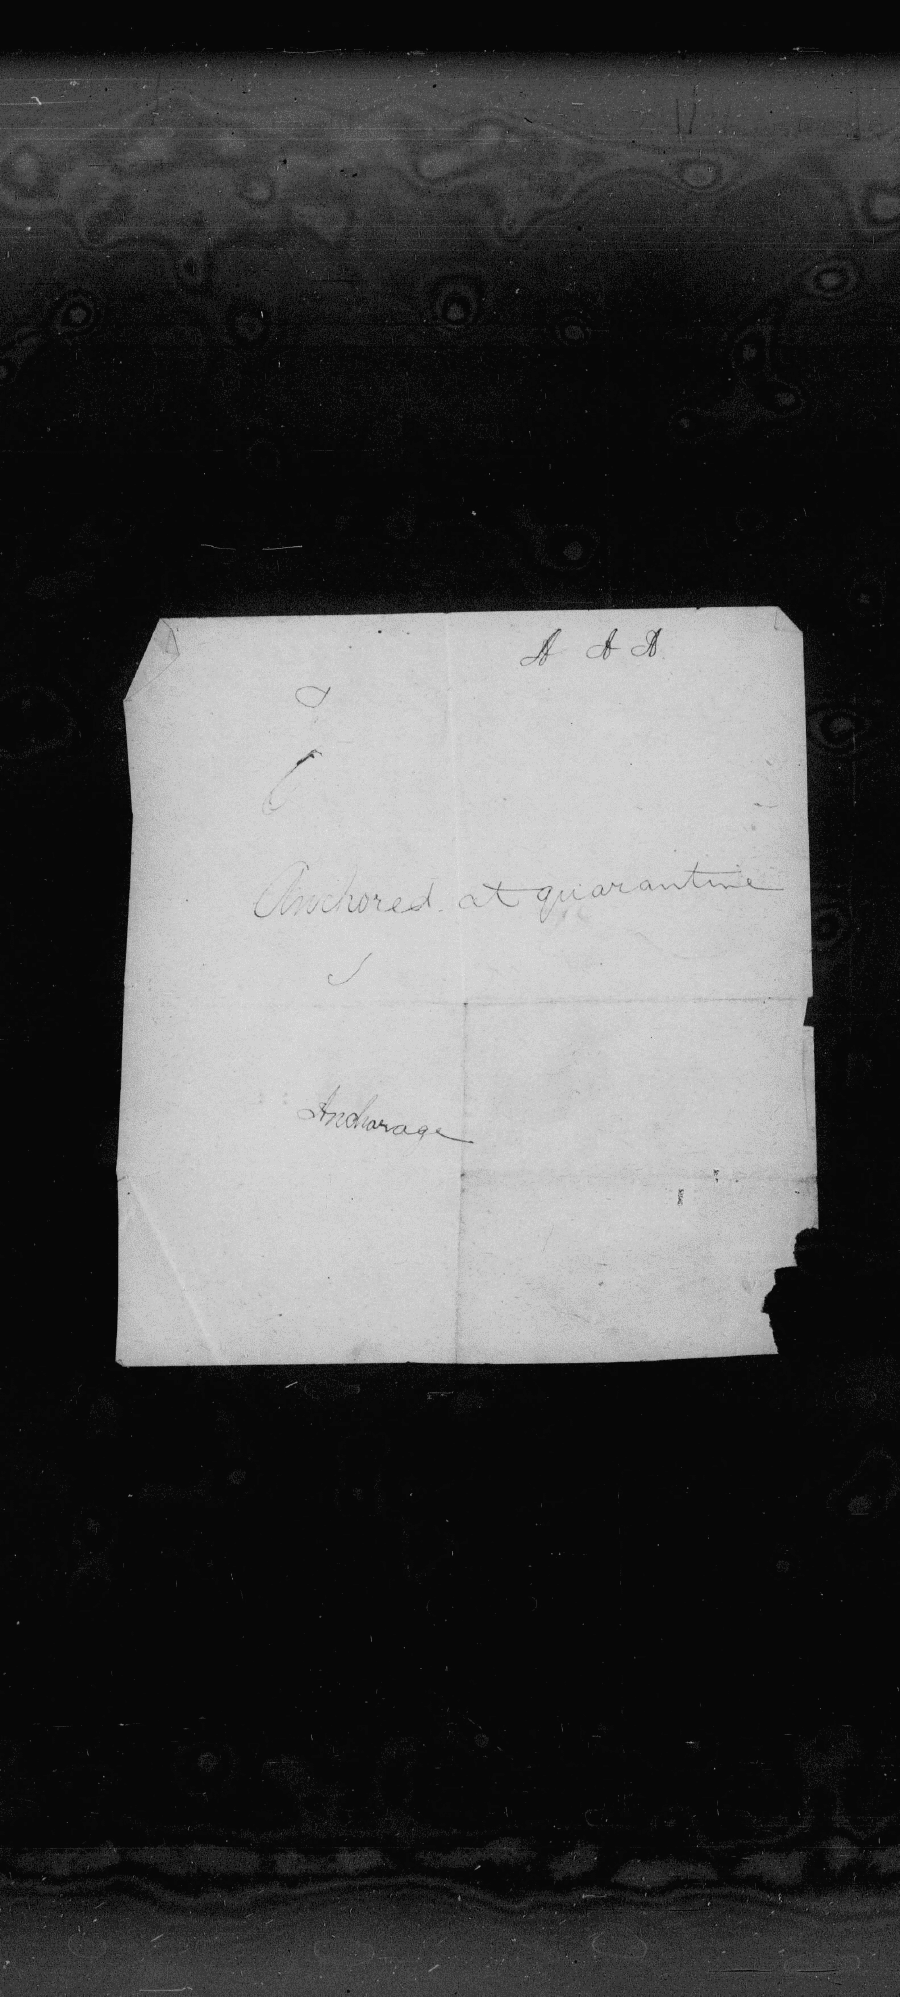 A A A
Anchored at quarantine
Anchorage